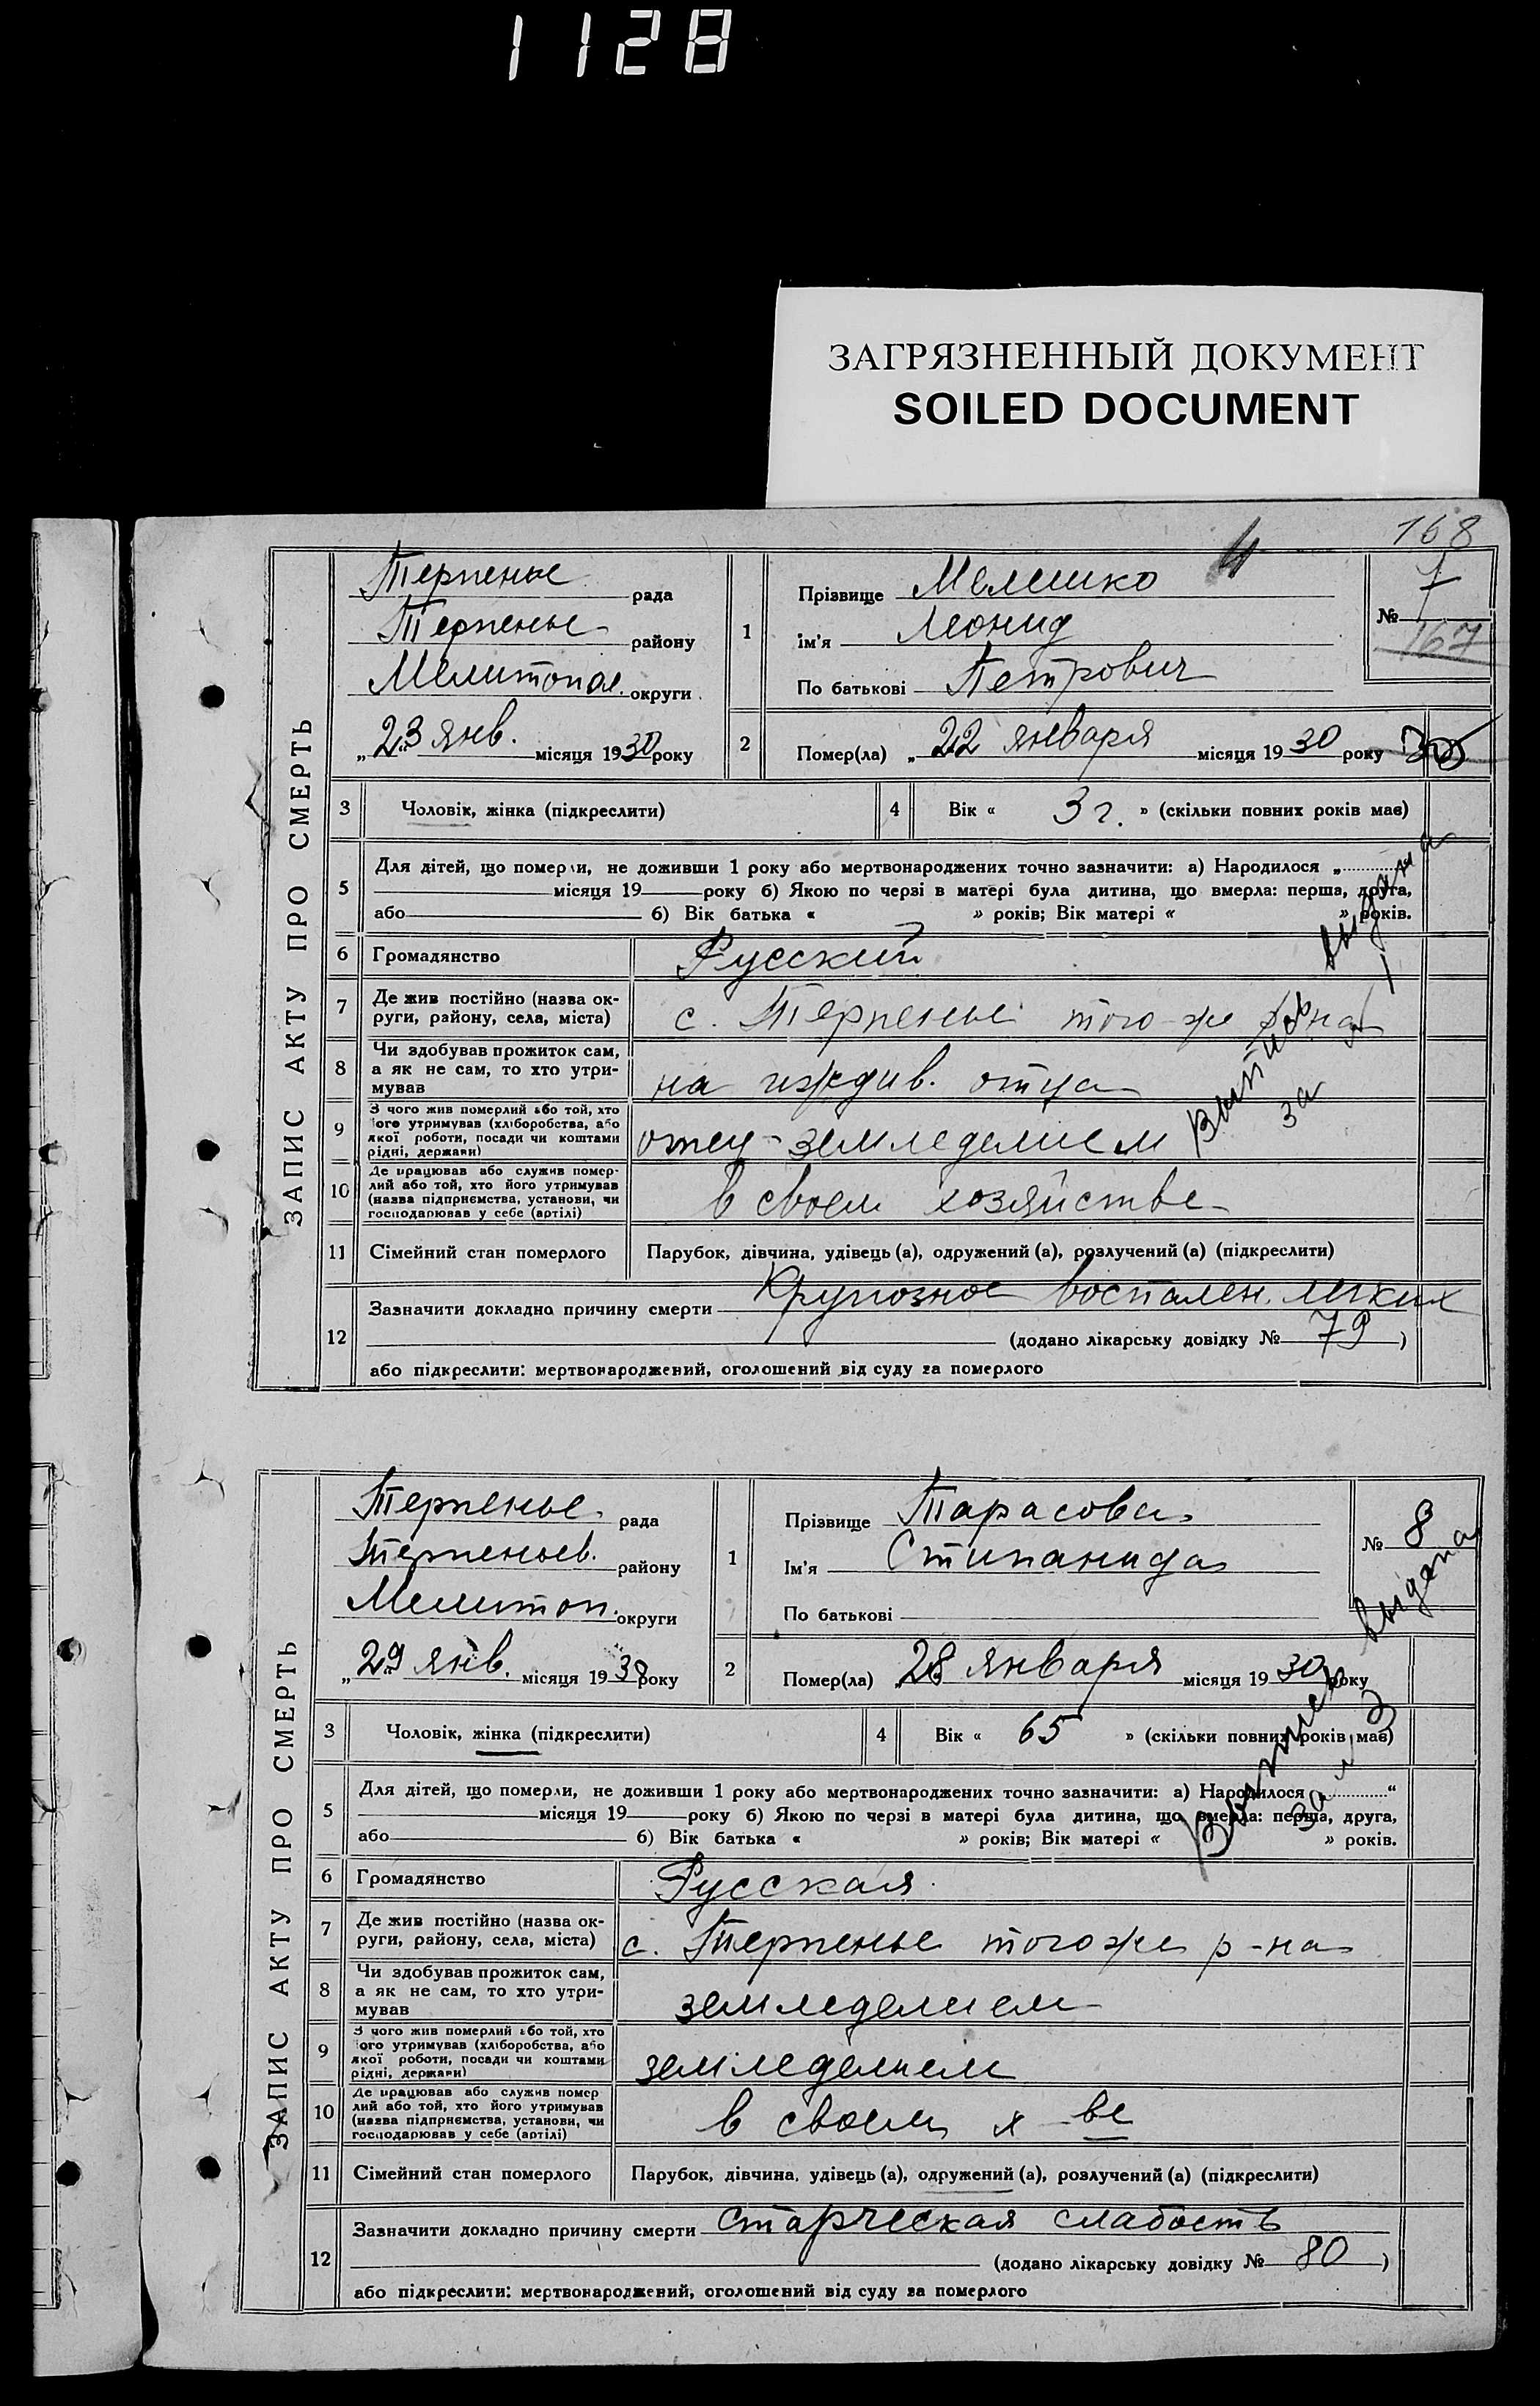 1128
ЗАГРЯЗНЕННЫЙ ДОКУМЕНТ
SOILED DOCUMENT
168
ЗАПИС АКТУ ПРО СМЕРТЬ
Терпенье рада
Терпенье району
Мелитопол. округи
„23 янв. місяця 1930 року
1 Прізвище Мелешко
ім'я Леонид
По батькові Петрович
№ 7
167
2 Помер(ла) „22 января місяця 1930 року
3 Чоловік, жінка (підкреслити) 4 Вік « 3 г. » (скільки повних років має)
5 Для дітей, що померли, не доживши 1 року або мертвонароджених точно зазначити: а) Народилося „
місяця 19 року б) Якою по черзі в матері була дитина, що вмерла: перша, друга,
або б) Вік батька « » років; Вік матері « » років.
6 Громадянство Русский
7 Де жив постійно (назва округи, району, села, міста) с. Терпенье того-же р-на
8 Чи здобував прожиток сам,
а як не сам, то хто утри-
мував на иждив. отца
9 З чого жив померлий або той, хто
його утримував (хліборобства, або
якої роботи, посади чи коштами
рідні, держави) отец - земледелием
10 Де працював або служив помер-
лий або той, хто його утримував
(назва підприємства, установи, чи
господарював у себе (артілі) в своем хозяйстве
11 Сімейний стан померлого Парубок, дівчина, удівець (а), одружений (а), розлучений (а) (підкреслити)
12 Зазначити докладно причину смерти Крупозное воспален. легких
(додано лікарську довідку № 79 )
або підкреслити: мертвонароджений, оголошений від суду за померлого
Выпись выдана
за
ЗАПИС АКТУ ПРО СМЕРТЬ
Терпенье рада
Терпеньев. району
Мелитоп. округи
„29 янв. місяця 1930 року
1 Прізвище Тарасова
Ім'я Стипанида
По батькові
№ 8
2 Помер(ла) 28 января місяця 1930 року
3 Чоловік, жінка (підкреслити) 4 Вік « 65 » (скільки повних років має)
5 Для дітей, що померли, не доживши 1 року або мертвонароджених точно зазначити: а) Народилося “
місяця 19 року б) Якою по черзі в матері була дитина, що вмерла: перша, друга,
або б) Вік батька « » років; Вік матері « » років.
6 Громадянство Русская
7 Де жив постійно (назва ок-
руги, району, села, міста) с. Терпенье того же р-на
8 Чи здобував прожиток сам,
а як не сам, то хто утри-
мував земледелием
9 З чого жив померлий або той, хто
його утримував (хліборобства, або
якої роботи, посади чи коштами
рідні, держави) земледелием
10 Де працював або служив помер
лий або той, хто його утримував
(назва підприємства, установи, чи
господарював у себе (артілі) в своем х-ве
11 Сімейний стан померлого Парубок, дівчина, удівець (а), одружений (а), розлучений (а) (підкреслити)
12 Зазначити докладно причину смерти Старческая слабость
(додано лікарську довідку № 80 )
або підкреслити: мертвонароджений, оголошений від суду за померлого
Выпись выдана
за